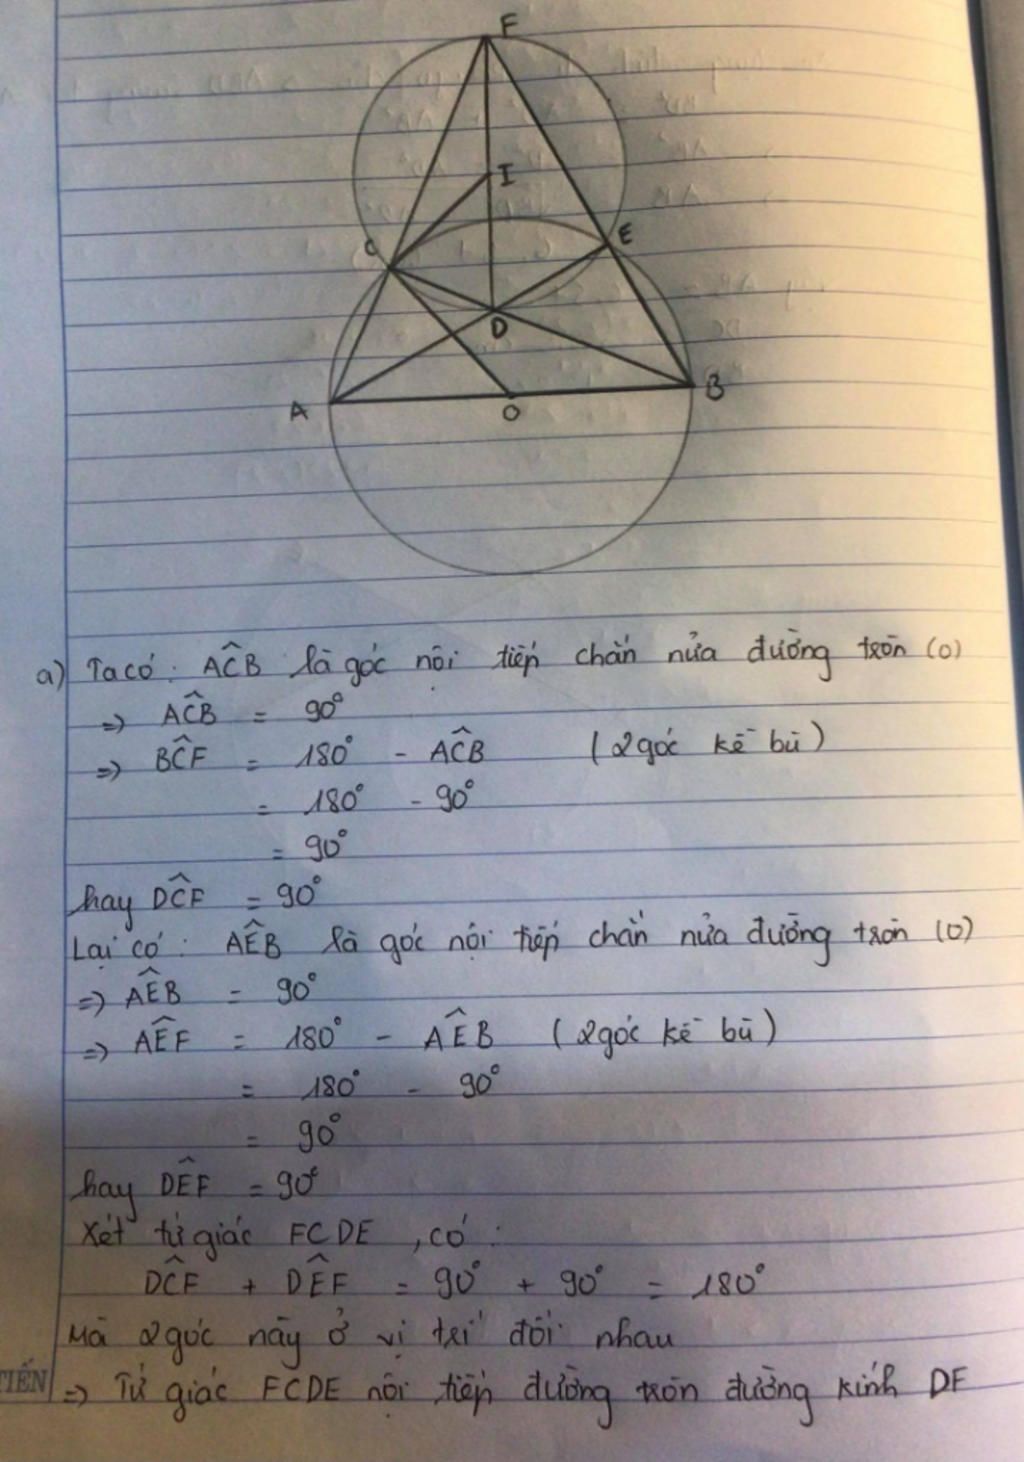 F
I
C
E
D
A
O
B
a) Ta có : AĈB là góc nội tiếp chắn nửa đường tròn (O)
=> AĈB = 90°
=> BĈF = 180° - AĈB (2 góc kề bù)
= 180° - 90°
= 90°
hay DĈF = 90°
Lại có : AÊB là góc nội tiếp chắn nửa đường tròn (O)
=> AÊB = 90°
=> AÊF = 180° - AÊB (2 góc kề bù)
= 180° - 90°
= 90°
hay DÊF = 90°
Xét tứ giác FCDE , có :
DĈF + DÊF = 90° + 90° = 180°
Mà 2 góc này ở vị trí đối nhau
=> Tứ giác FCDE nội tiếp đường tròn đường kính DF
TIẾN